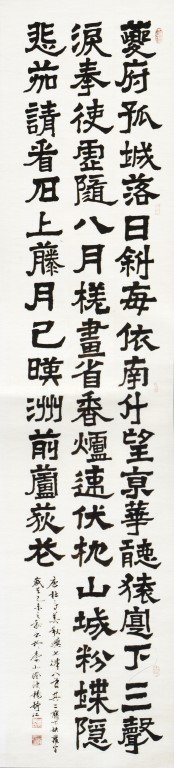 夔府孤城落日斜每依南斗望亰華聽猿寔下三聲
淚奉使虛隨八月槎畫省香爐違伏枕山城粉堞隱
悲笳請看石上藤月已暎洲前蘆荻花
唐杜子美秋興八首其二藤下缺蘿字